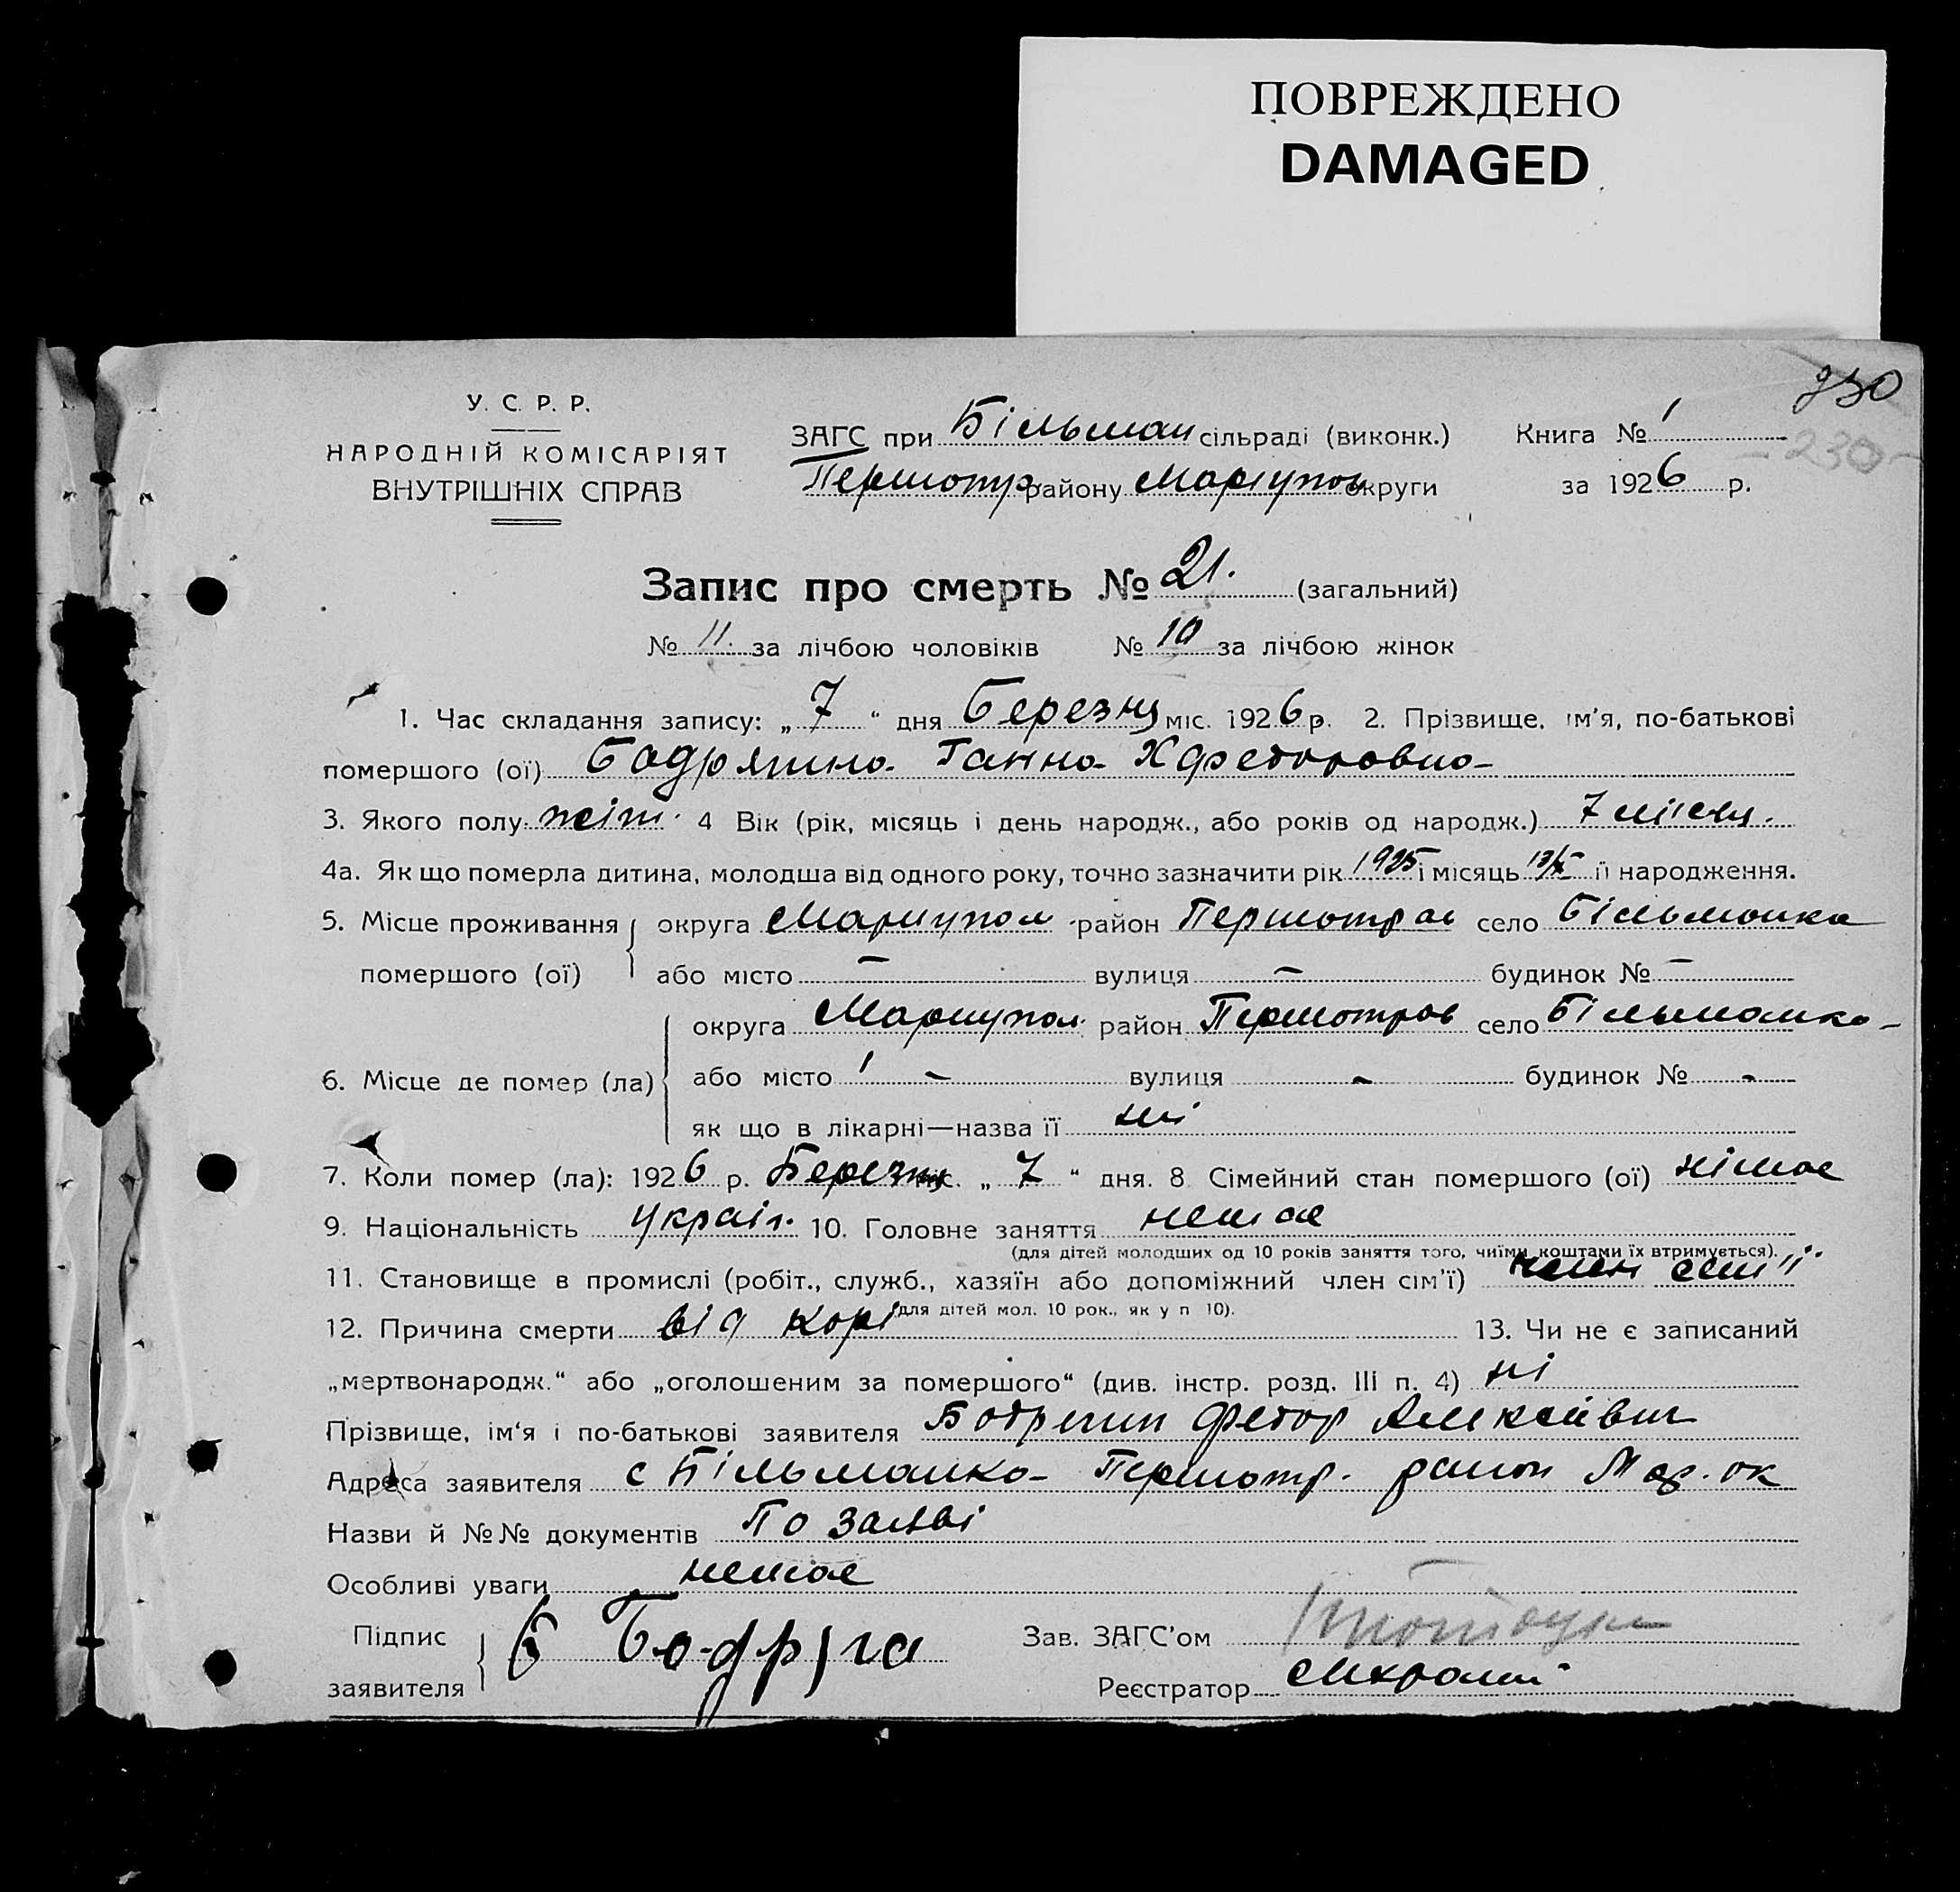 ПОВРЕЖДЕНО
DAMAGED
230
У. С. Р. Р.
НАРОДНІЙ КОМІСАРІЯТ
ВНУТРІШНІХ СПРАВ
ЗАГС при Більман сільраді (виконк.)
Першотр. району Маріупол округи
Книга № 1
- 230 -
за 1926 р.
Запис про смерть № 21. (загальний)
№ 11. за лічбою чоловіків № 10 за лічбою жінок
1. Час складання запису: „ 7 “ дня Березня міс. 1926 р. 2. Прізвище, ім'я, по-батькові
помершого (ої) Бадрягина Ганна Хфедоровна
3. Якого полу жін. 4 Вік (рік, місяць і день народж., або років од народж.) 7 місяц.
4а. Як що померла дитина, молодша від одного року, точно зазначити рік 1925 і місяць її народження.
5. Місце проживання округа Мариупол район Першотрав село Більманка
помершого (ої) або місто — вулиця — будинок № —
округа Мариупол район Першотрав село Більманка
6. Місце де помер (ла) або місто - вулиця - будинок № -
як що в лікарні—назва її ні
7. Коли помер (ла): 1926 р. Березня міс. „ 7 “ дня. 8 Сімейний стан помершого (ої) німає
9. Національність україн. 10. Головне заняття немає
(для дітей молодших од 10 років заняття того, чиїми коштами їх втримується).
11. Становище в промислі (робіт., служб., хазяїн або допоміжний член сім'ї) член сімії
(для дітей мол. 10 рок., як у п 10).
12. Причина смерти від корі 13. Чи не є записаний
„мертвонародж.“ або „оголошеним за помершого“ (див. інстр. розд. III п. 4) ні
Прізвище, ім'я і по-батькові заявителя Бодрягин Федор Алексійвич
Адреса заявителя с Більманка Першотр. район Мар. ок
Назви й №№ документів По заяві
Особливі уваги немає
Підпис
заявителя
Зав. ЗАГС'ом
Реєстратор